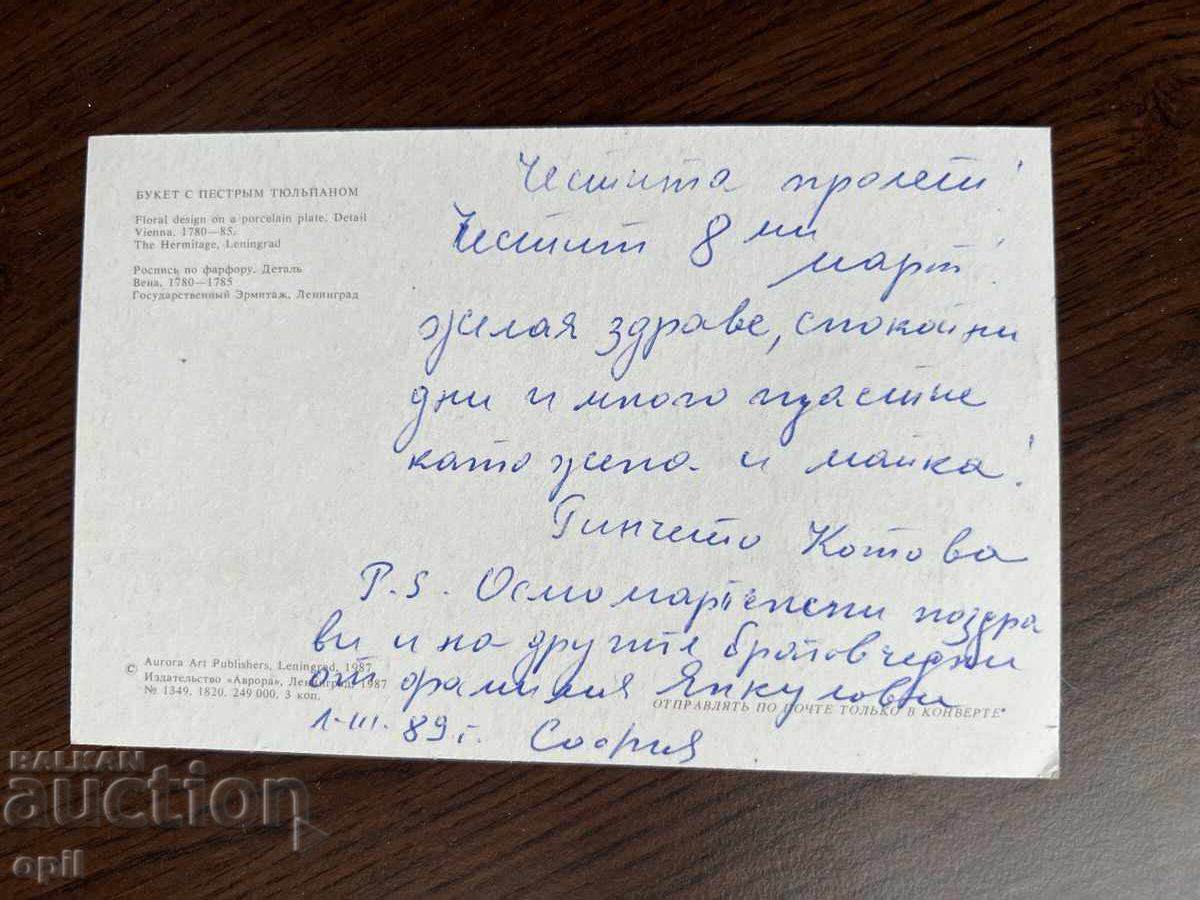 БУКЕТ С ПЕСТРЫМ ТЮЛЬПАНОМ
Floral design on a porcelain plate. Detail
Vienna. 1780—85.
The Hermitage, Leningrad
Роспись по фарфору. Деталь
Вена. 1780—1785
Государственный Эрмитаж, Ленинград
Честита пролет!
Честит 8 ми
март!
желая здраве, спокойни
дни и много щастие
като жена и майка!
Гинчето Котова
P.S. Осмомартенски поздра
ви и на другите братовчедки
от фамилия Янкулови
1.III.89 г. София
© Aurora Art Publishers, Leningrad, 1987
Издательство «Аврора», Ленинград, 1987
№ 1349. 1820. 249 000. 3 коп.
ОТПРАВЛЯТЬ ПО ПОЧТЕ ТОЛЬКО В КОНВЕРТЕ
BALKAN
auction
opil